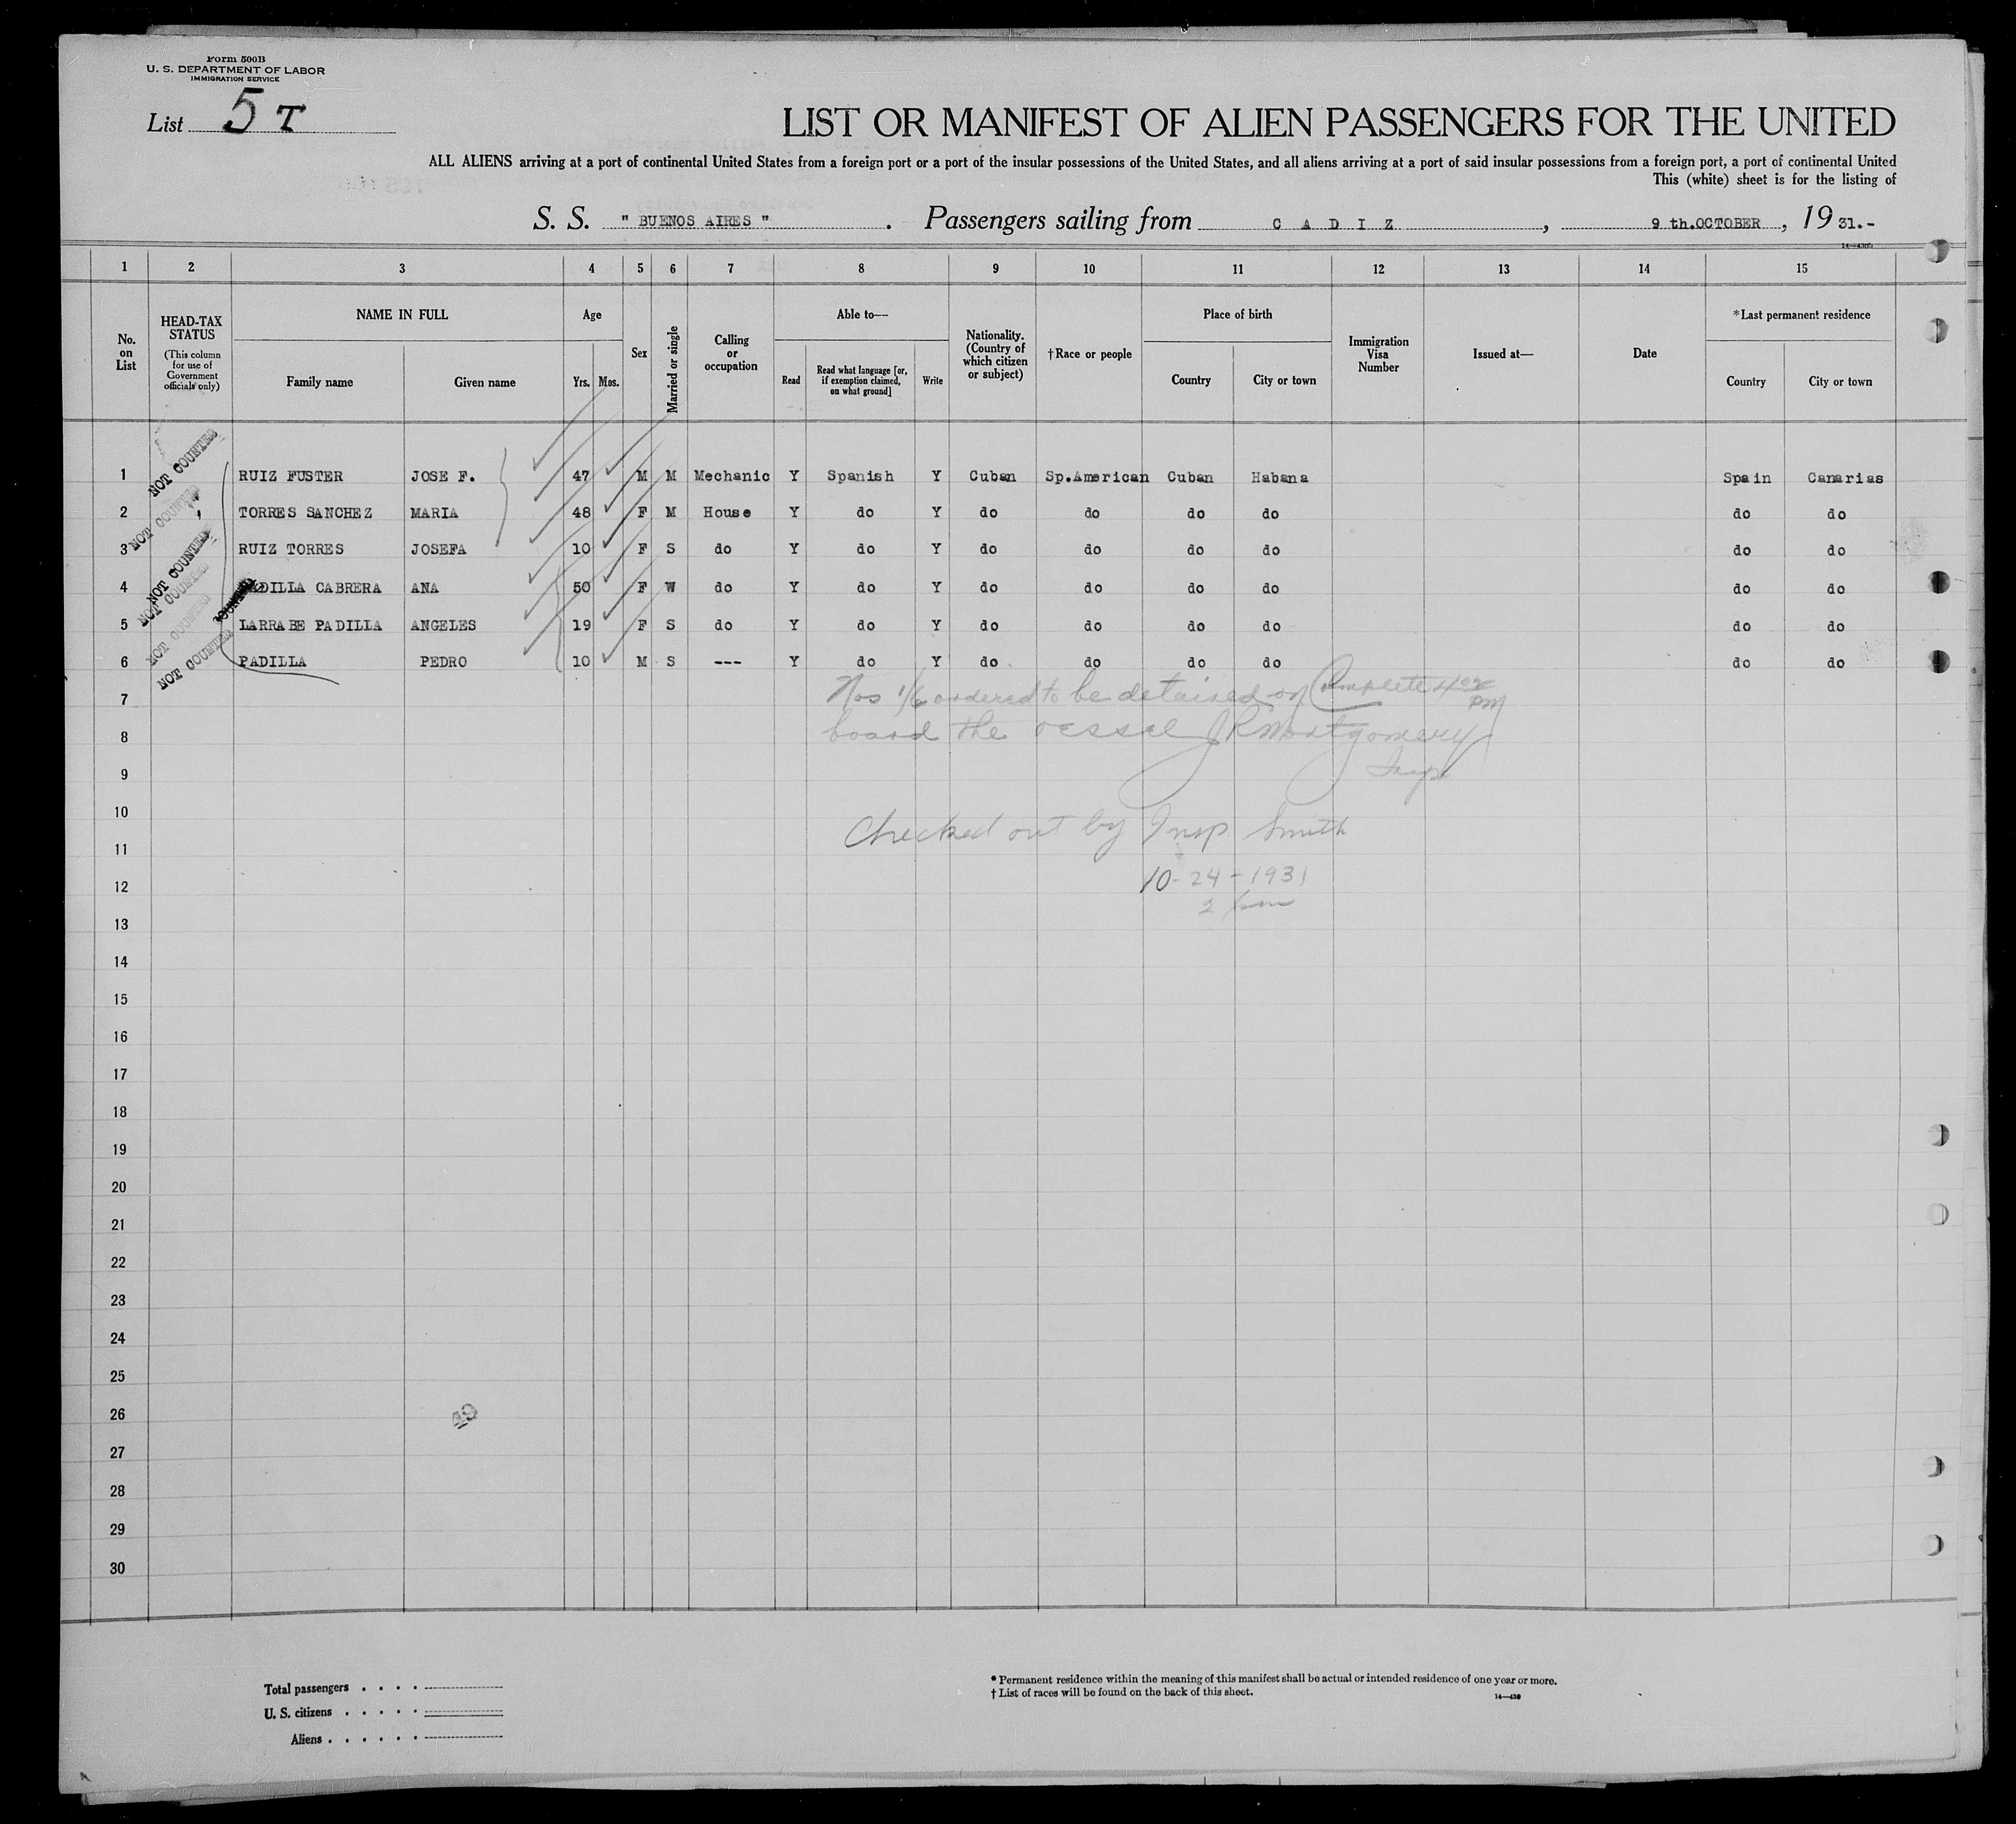 Form 500B
U. S. DEPARTMENT OF LABOR
IMMIGRATION SERVICE
List 5 T
LIST OR MANIFEST OF ALIEN PASSENGERS FOR THE UNITED
ALL ALIENS arriving at a port of continental United States from a foreign port or a port of the insular possessions of the United States, and all aliens arriving at a port of said insular possessions from a foreign port, a port of continental United
This (white) sheet is for the listing of
S. S. " BUENOS AIRES " . Passengers sailing from C A D I Z , 9 th.OCTOBER , 19 31.-
1 2 3 4 5 6 7 8 9 10 11 12 13 14 15
No. on List
HEAD-TAX STATUS
(This column for use of Government officials only)
NAME IN FULL
Family name Given name
Age
Yrs. Mos.
Sex
Married or single
Calling or occupation
Able to—
Read
Read what language [or, if exemption claimed, on what ground]
Write
Nationality. (Country of which citizen or subject)
†Race or people
Place of birth
Country City or town
Immigration Visa Number
Issued at—
Date
*Last permanent residence
Country City or town
NOT COUNTED
NOT COUNTED
NOT COUNTED
NOT COUNTED
NOT COUNTED
NOT COUNTED
1 RUIZ FUSTER JOSE F. 47 M M Mechanic Y Spanish Y Cuban Sp.American Cuban Habana Spain Canarias
2 TORRES SANCHEZ MARIA 48 F M House Y do Y do do do do do do
3 RUIZ TORRES JOSEFA 10 F S do Y do Y do do do do do do
4 PADILLA CABRERA ANA 50 F W do Y do Y do do do do do do
5 LARRABE PADILLA ANGELES 19 F S do Y do Y do do do do do do
6 PADILLA PEDRO 10 M S --- Y do Y do do do do do do
7 Nos 1/6 ordered to be detained on Complete 4 02 pm
8 board the vessel J R Montgomery
9 Insp
10
Checked out by Insp Smith
11
12 10-24-1931
2 pm
13
14
15
16
17
18
19
20
21
22
23
24
25
26
49
27
28
29
30
Total passengers
U. S. citizens
Aliens
* Permanent residence within the meaning of this manifest shall be actual or intended residence of one year or more.
† List of races will be found on the back of this sheet.
14—430